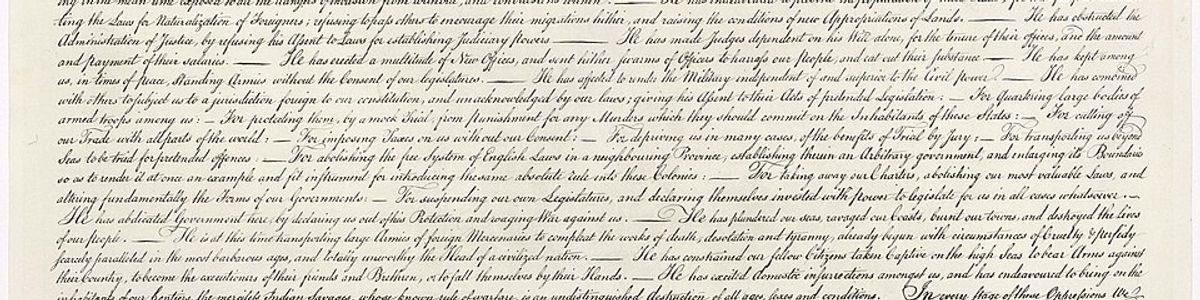 ting the Laws for Naturalization of Foreigners; refusing to pass others to encourage their migrations hither, and raising the conditions of new Appropriations of Lands. — He has obstructed the
Administration of Justice, by refusing his Assent to Laws for establishing Judiciary powers. — He has made Judges dependent on his Will alone, for the tenure of their offices, and the amount
and payment of their salaries. — He has erected a multitude of New Offices, and sent hither swarms of Officers to harrass our people, and eat out their substance. — He has kept among
us, in times of peace, Standing Armies without the Consent of our legislatures. — He has affected to render the Military independent of and superior to the Civil power. — He has combined
with others to subject us to a jurisdiction foreign to our constitution, and unacknowledged by our laws; giving his Assent to their Acts of pretended Legislation: — For Quartering large bodies of
armed troops among us: — For protecting them, by a mock Trial, from punishment for any Murders which they should commit on the Inhabitants of these States: — For cutting off
our Trade with all parts of the world: — For imposing Taxes on us without our Consent: — For depriving us in many cases, of the benefits of Trial by Jury: — For transporting us beyond
Seas to be tried for pretended offences: — For abolishing the free System of English Laws in a neighbouring Province, establishing therein an Arbitrary government, and enlarging its Boundaries
so as to render it at once an example and fit instrument for introducing the same absolute rule into these Colonies: — For taking away our Charters, abolishing our most valuable Laws, and
altering fundamentally the Forms of our Governments: — For suspending our own Legislatures, and declaring themselves invested with power to legislate for us in all cases whatsoever. —
He has abdicated Government here, by declaring us out of his Protection and waging War against us. — He has plundered our seas, ravaged our Coasts, burnt our towns, and destroyed the lives
of our people. — He is at this time transporting large Armies of foreign Mercenaries to compleat the works of death, desolation and tyranny, already begun with circumstances of Cruelty & perfidy
scarcely paralleled in the most barbarous ages, and totally unworthy the Head of a civilized nation. — He has constrained our fellow Citizens taken Captive on the high Seas to bear Arms against
their Country, to become the executioners of their friends and Brethren, or to fall themselves by their Hands. — He has excited domestic insurrections amongst us, and has endeavoured to bring on the
inhabitants of our frontiers, the merciless Indian Savages, whose known rule of warfare, is an undistinguished destruction of all ages, sexes and conditions. In every stage of these Oppressions We